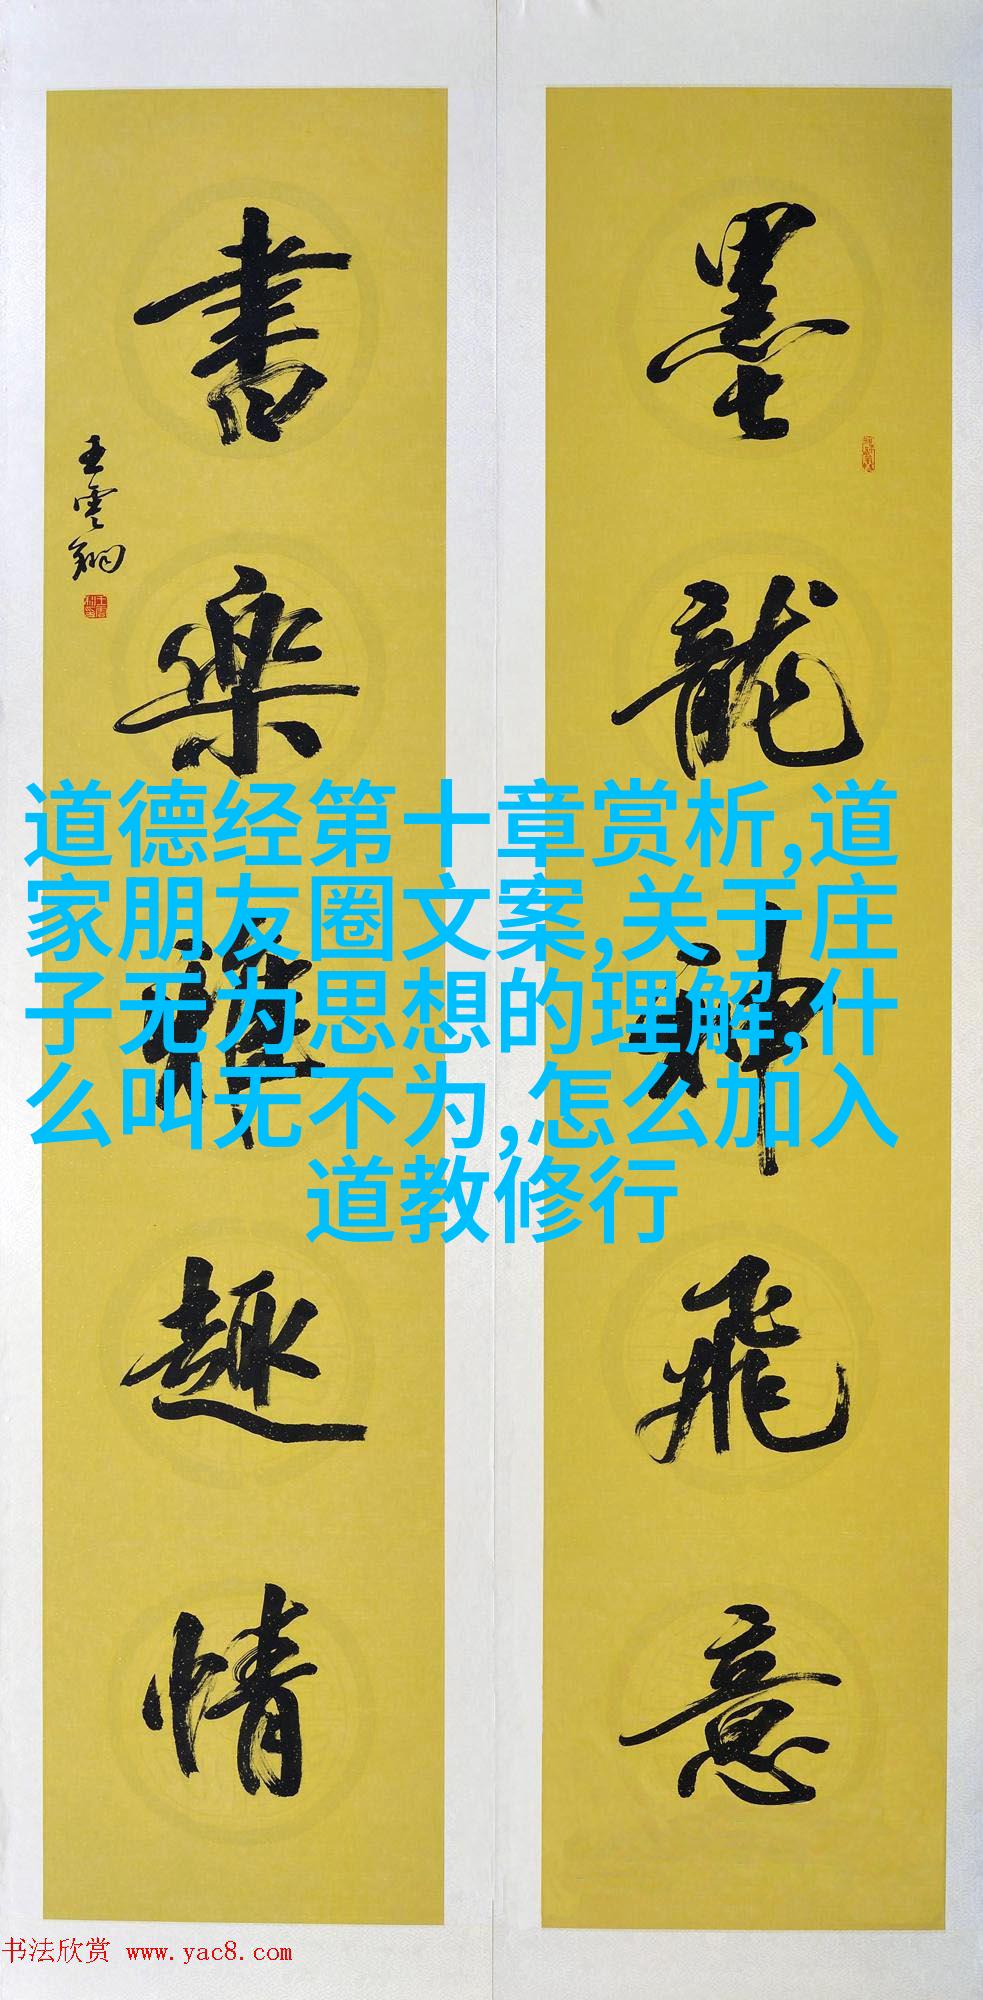 墨龍神飛意
書樂雅趣情
王雲翔
道德经第十章赏析,道
家朋友圈文案,关于庄
子无为思想的理解,什
么叫无不为,怎么加入
道教修行
书法欣赏 www.yac8.com